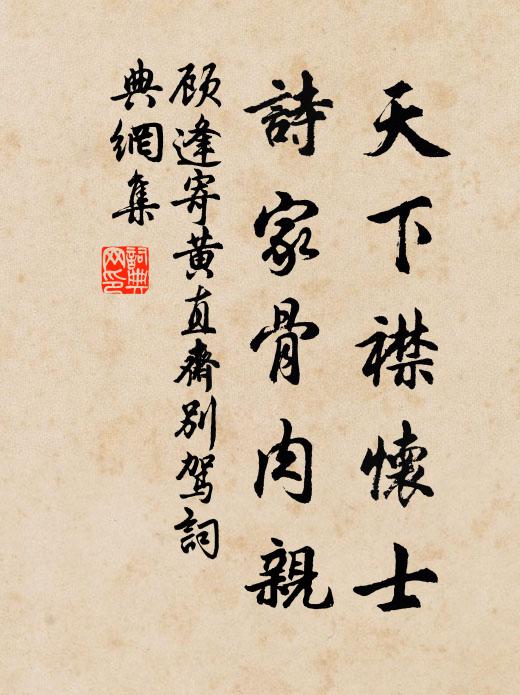 天下襟懷士
詩家骨肉親
顾逢寄黄直齋别駕詞
典網集
詞典网印